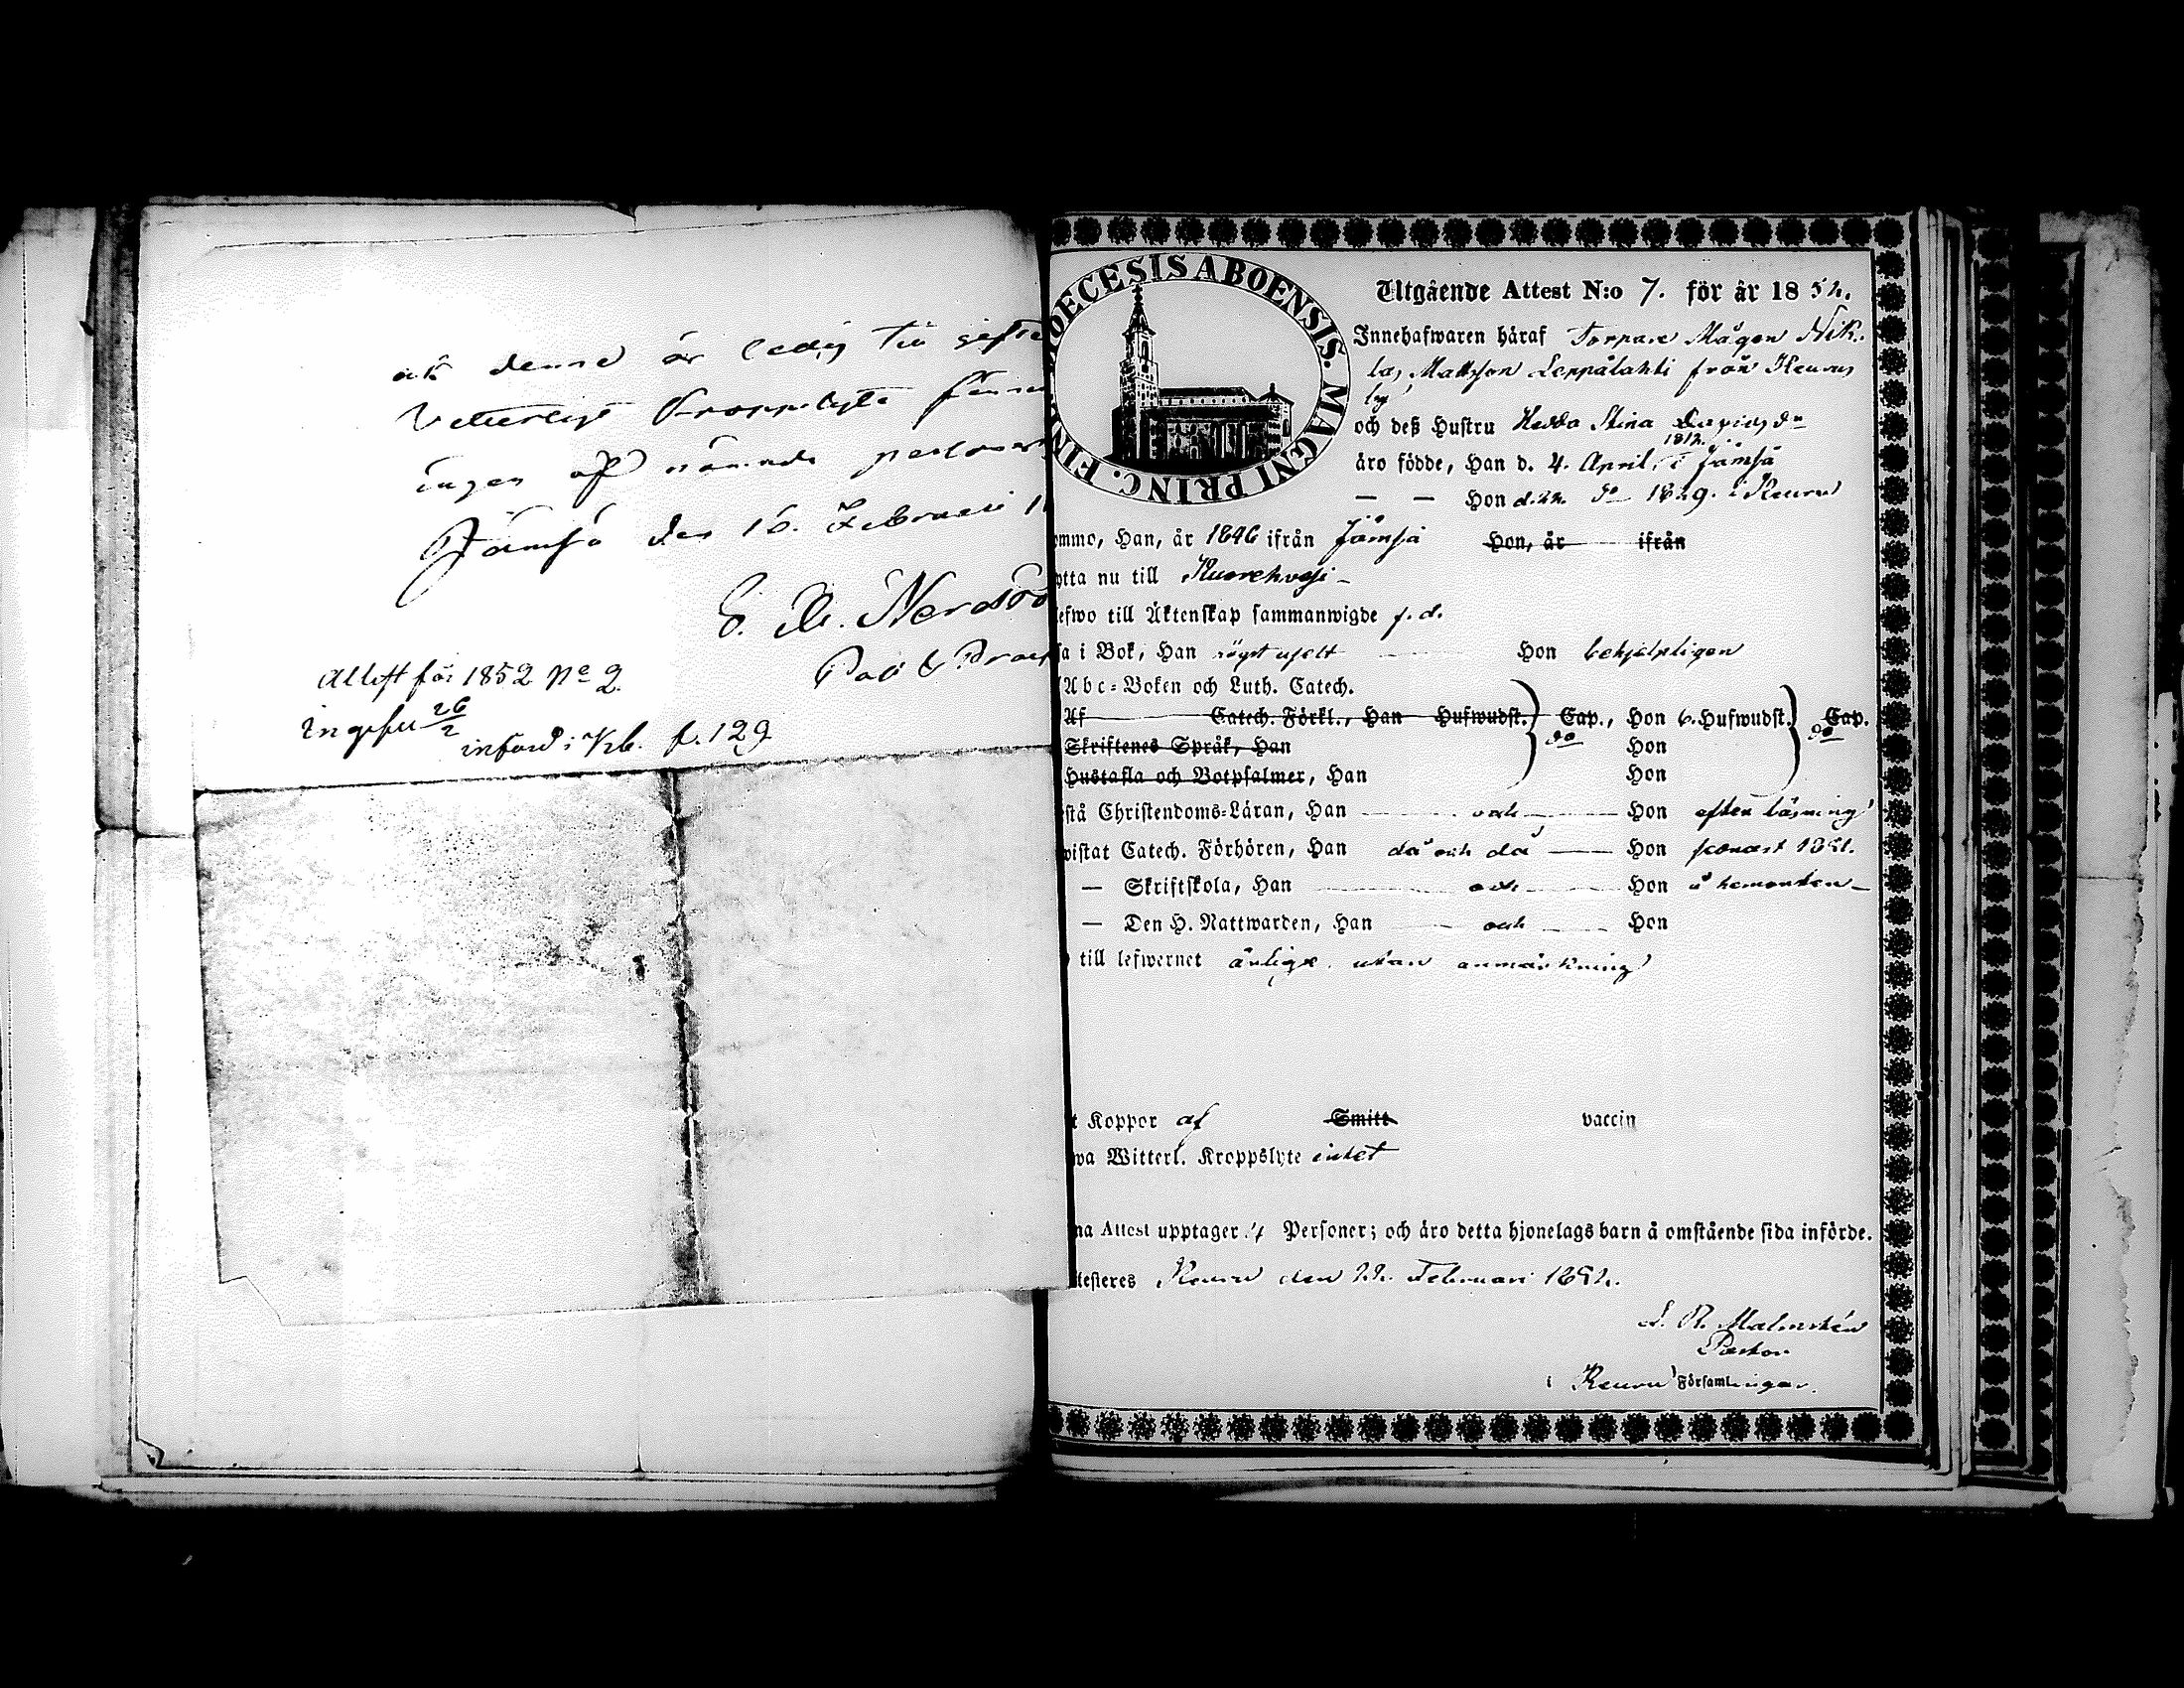 att denne är ledig till gifte
Vetterligt Kroppslyte finne
ingen af nämnde person
Jämsä den 16. Februari 1
Past & Prae
Attest för 1852 No 2.
ingifven 26/2
införd i Kb. p. 129
DIOECESIS ABOENSIS. MAGNI PRINC. FIN
Utgående Attest N:o 7. för år 1852.
Innehafwaren häraf Torpare Mågen Nik-
las Mattsson Leppälahti från Keuru
by
och deß Hustru Hedda Stina
1812.
äro födde, Han d. 4. April, i Jämsä
— — Hon d. 22. do 1829. i Keuru
ommo, Han, år 1846 ifrån Jämsä Hon, år ifrån
ytta nu till Kuorehvesi –
lefwo till Äktenskap sammanwigde f. d.
sa i Bok, Han högst uselt Hon behjelpligen
Abc-Boken och Luth. Catech.
Af Catech. Förkl., Han Hufwudst. Cap., Hon 6. Hufwudst. Cap.
Skriftenes Språk, Han do Hon do
Hustafla och Botpsalmer, Han Hon
stå Christendoms-Läran, Han och Hon efter läsning
wistat Catech. Förhören, Han då och då Hon senast 1851.
— Skriftskola, Han och Hon å hemorten –
— Den H. Nattwarden, Han och Hon
till lefwernet ärlige utan anmärkning
t Koppor af Smitt vaccin
wa Witterl. Kroppslyte intet
na Attest upptager 4 Personer; och äro detta hjonelags barn å omstående sida införde.
testeres Keuru den 22. Februari 1852.
Malmstén
Pastor
i Keuru Församlingar.